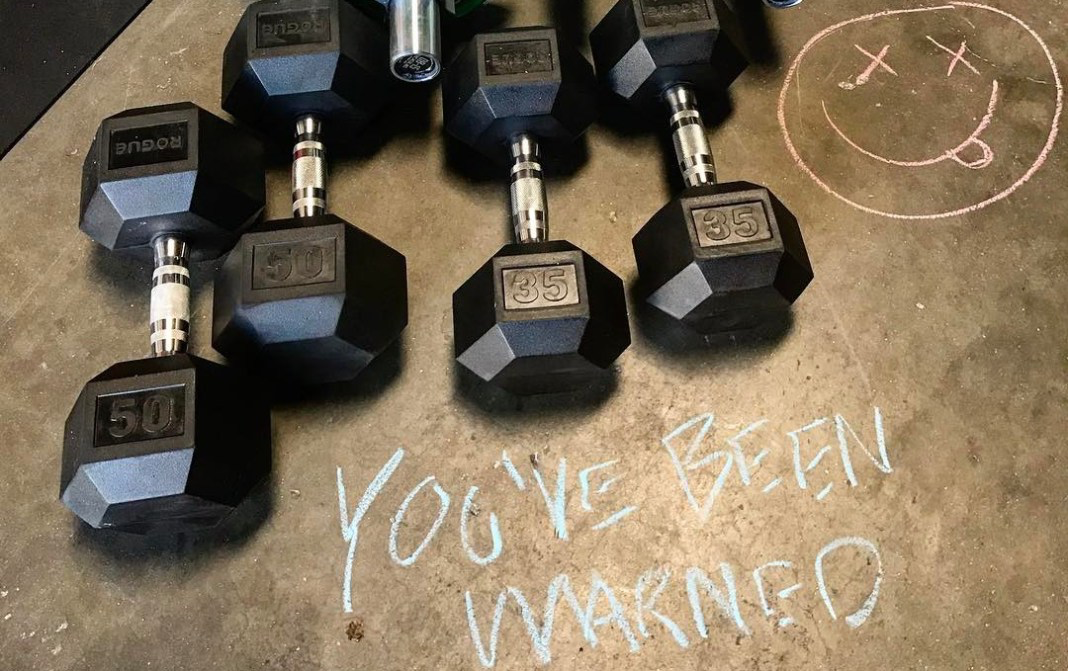 ROGUE
ROGUE
ROGUE
50
50
35
35
YOU'VE BEEN
WARNED